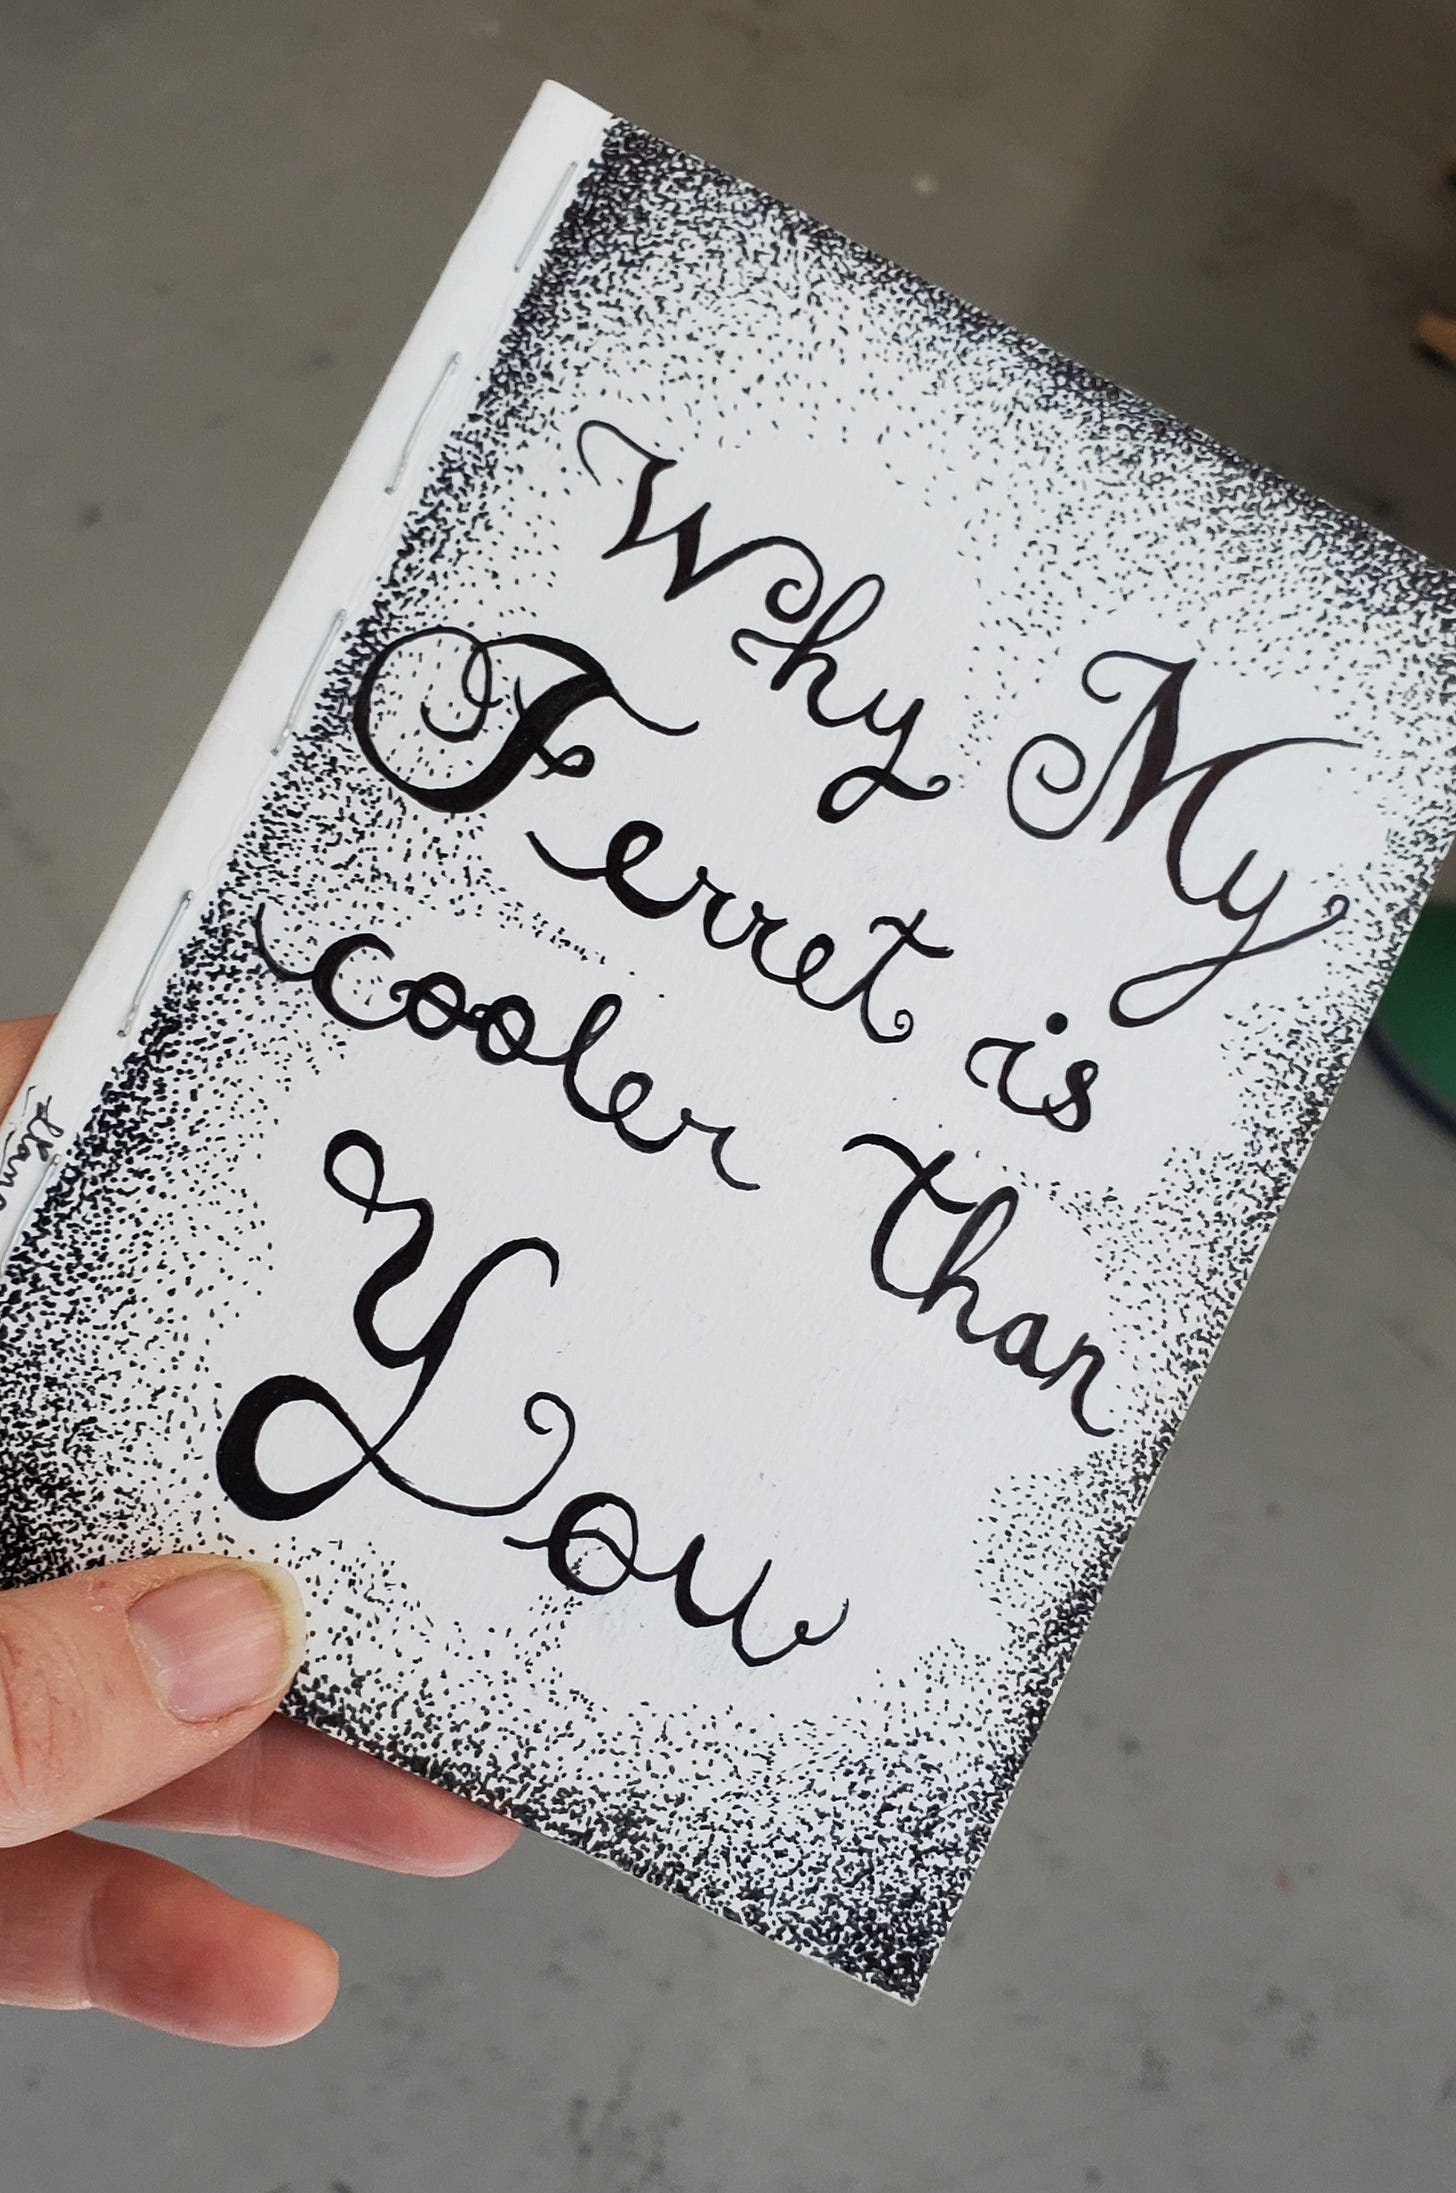 Why My
Ferret is
cooler than
You